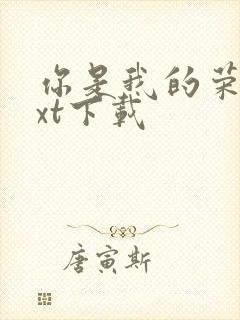 你是我的荣
xt下载
唐寅斯